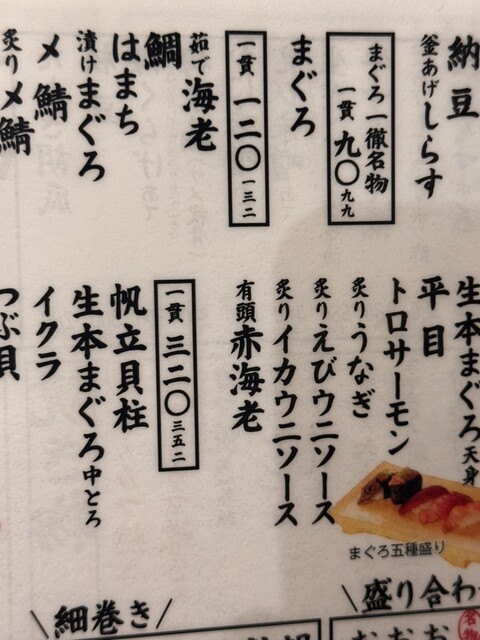 納豆
釜あげしらす
まぐろ一徹名物
一貫 九〇 九九
まぐろ
一貫 一二〇 一三二
茹で海老
鯛
はまち
漬けまぐろ
〆鯖
炙り〆鯖
生本まぐろ天身
平目
トロサーモン
炙りうなぎ
炙りえびウニソース
炙りイカウニソース
有頭赤海老
一貫 三二〇 三五二
帆立貝柱
生本まぐろ中とろ
イクラ
つぶ貝
まぐろ五種盛り
\細巻き/
\盛り合わ
名物